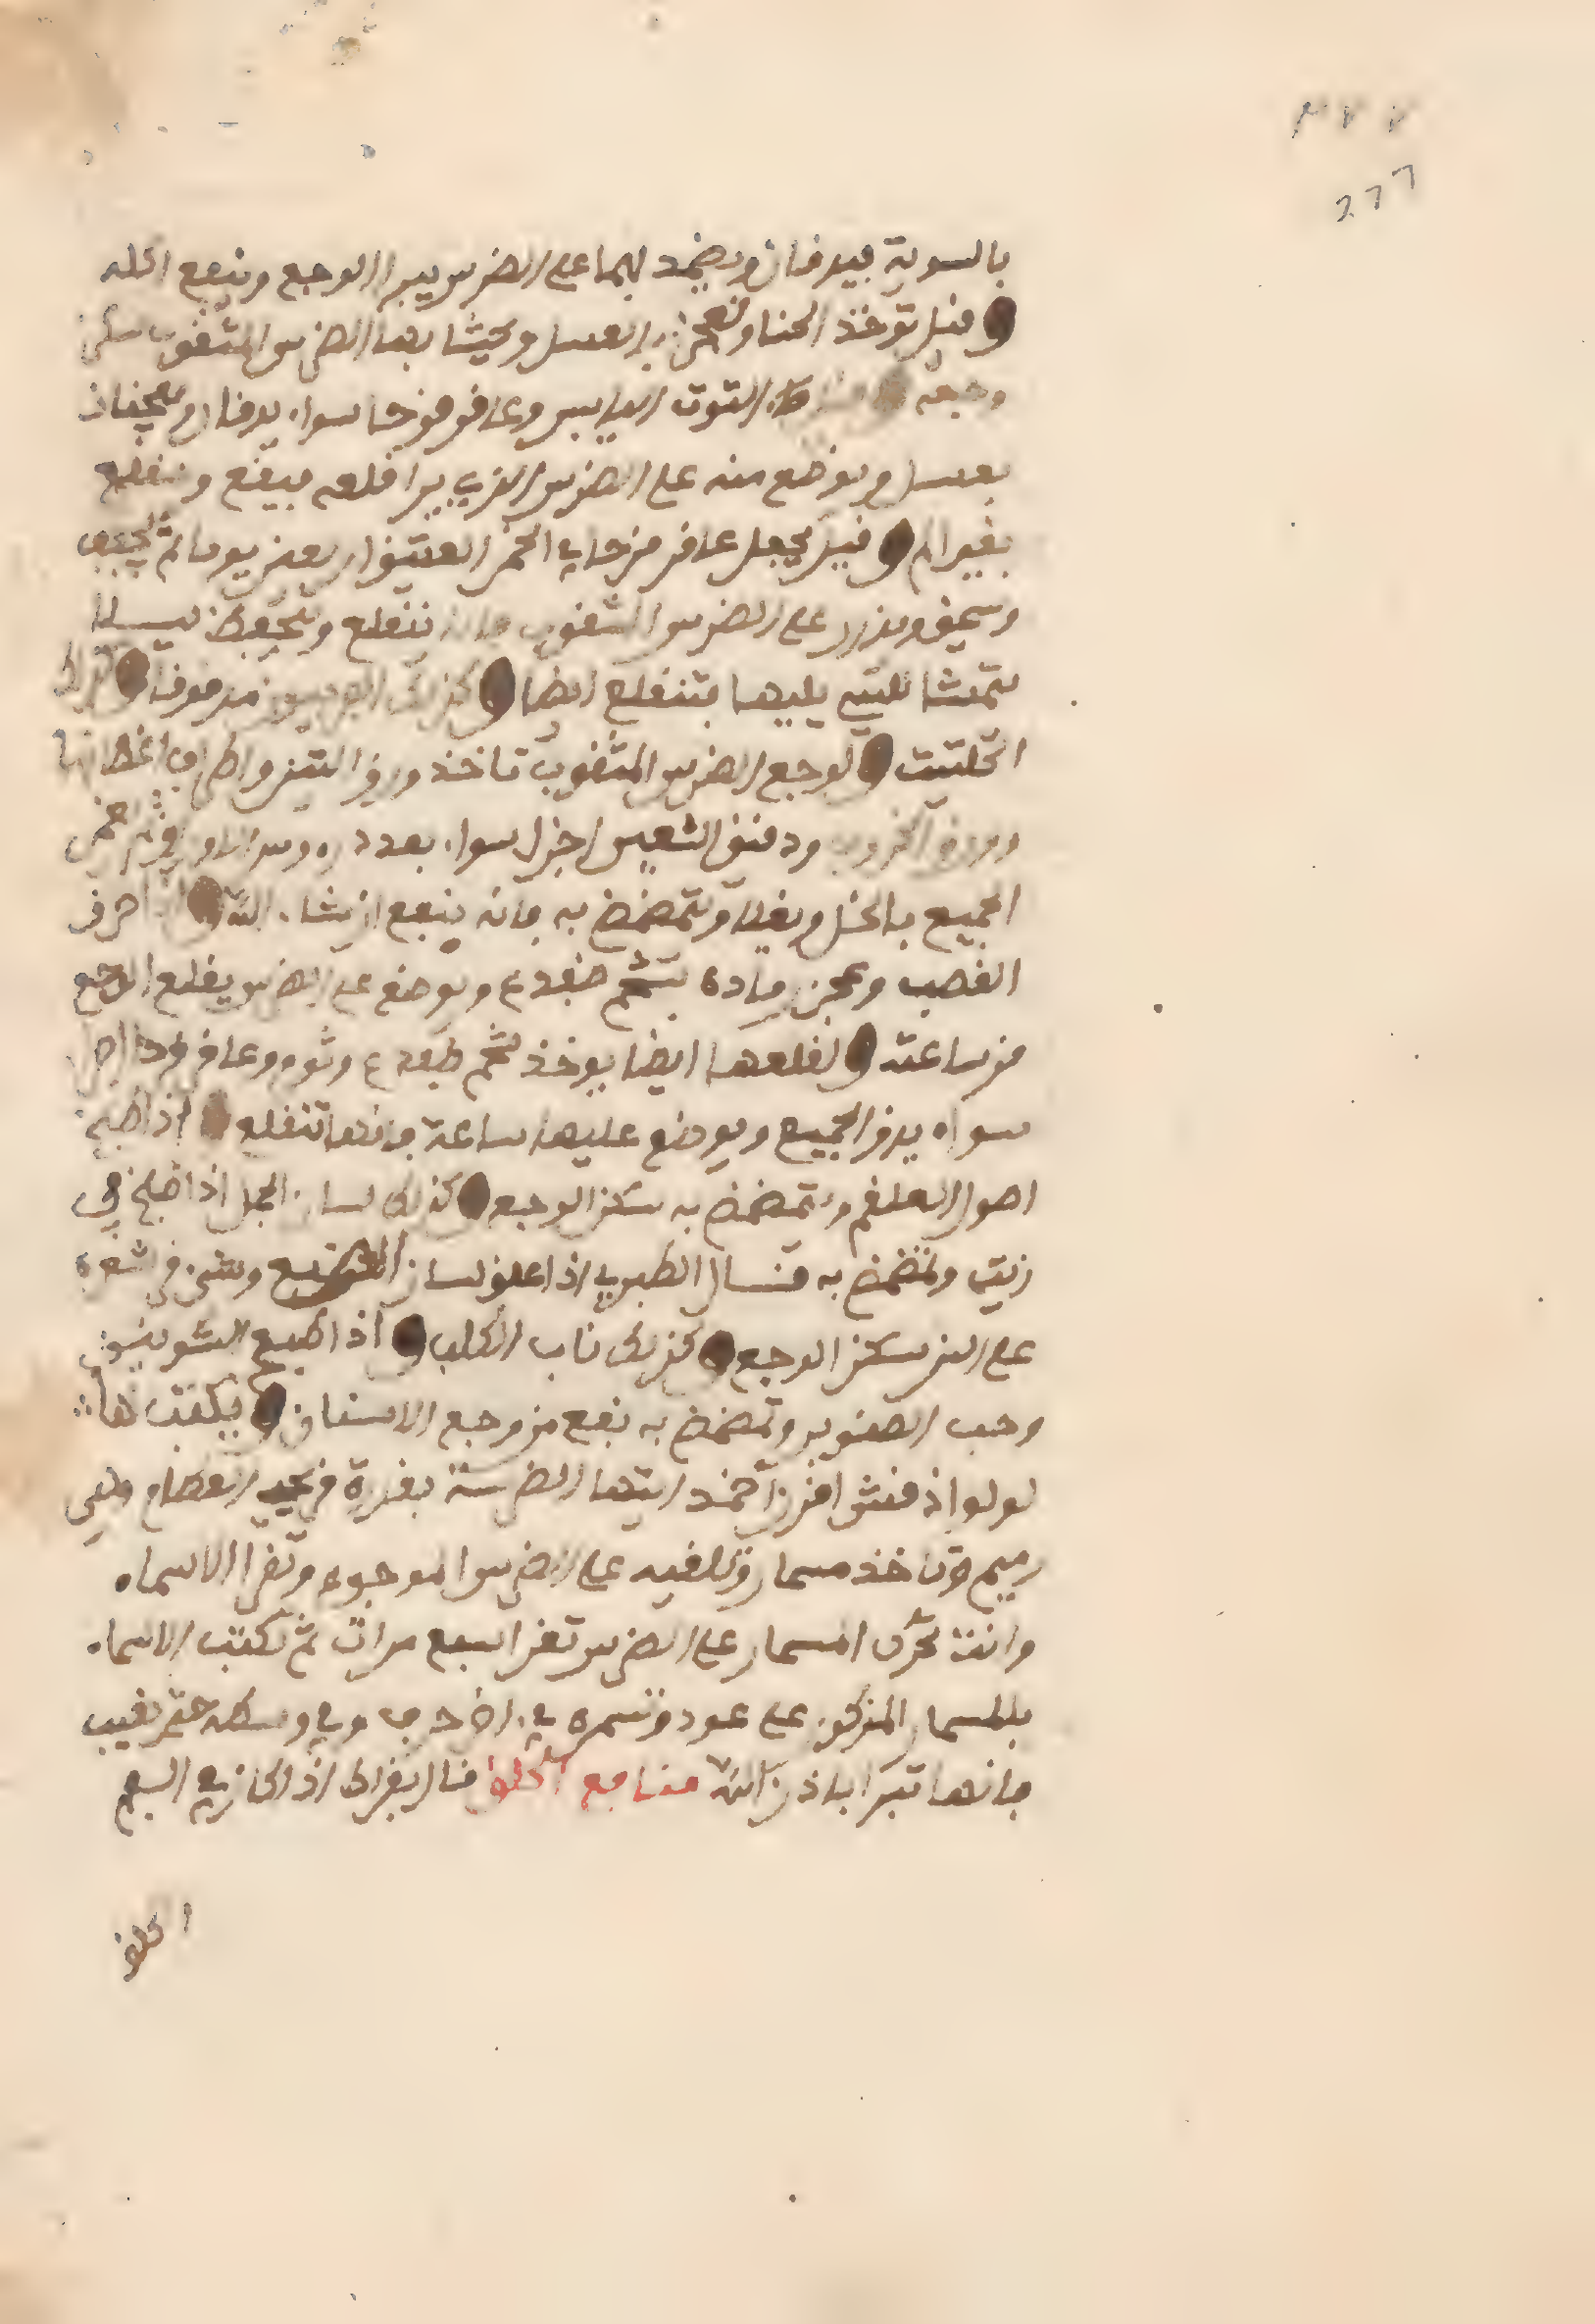 ٢٧٧
277
بالسوية فيدقان ويضمد بهما على الضرس يبرا الوجع وينفع اكله
وقيل توخذ الحنا وتعجن بالعسل ويحشا بها الضرس المثقوب يسكن
وجعه التوت اليابس وعاقرقرحا سواء يدقان ويعجنان
بعسل ويوضع منه على الضرس الذي يرا قلعه فيقع وينقلع
بغير الم وقيل يجعل عاقرقرحا في الخمر العتيق اربعين يوما ثم يجفف
ويسحق ويذرر على الضرس المثقوب ينقلع ويتحفظ ليسلا
تمشا للتي يليها فتنقلع ايضا وكذلك مدقوقا وكذلك
الحلتيت ولوجع الضرس المثقوب تاخذ ورق التين واطراف اغصانها
وورق الخروب ودقيق الشعير اجزا سواء بعدد
الجميع بالخل ويغلا ويتمضمض به فانه ينفع ان شاء الله احرق
القصب وعجن رماده بشحم ضفدع ويوضع على الضرس يقلع الوجع
من ساعته ولقلعها ايضا يوخذ شحم ضفدع وثوم وعاقرقرحا اجزا
سواء يدق الجميع ويوضع عليها ساعة فانها تنقلع اذا طبخ
اصول العلقم وتمضمض به سكن الوجع وكذلك لسان الحمل اذا طبخ في
زيت وتمضمض به قال الطبري اذا علق لسان وشيء من شعره
على الذي سكن الوجع وكذلك ناب الكلب واذا طبخ الشونيز
وحب الصنوبر وتمضمض به نفع من وجع الاسنان ويكتب لها
لولو اذ فنش ايتها الضرسة بقدرة من يحيي العظام وهي
رميم وتاخذ مسمار وتلقيه على الضرس الموجوع وتقرا الاسماء
وانت تحرك المسمار على الضرس تقرا سبع مرات ثم تكتب الاسماء
بالمسمار المذكور على عود وتسمره في وفي وسطه حتى يغيب
فانها تبرا باذن الله منافع الحلق قال بقراط اذا كان في الفم
الحلق